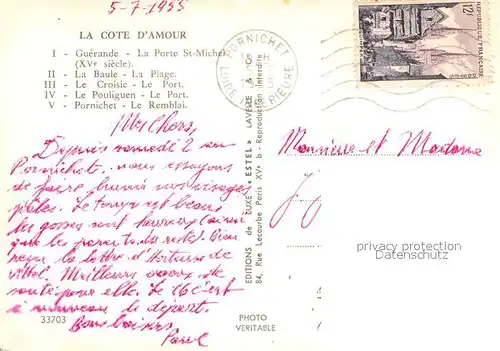 5-7-1955
LA COTE D'AMOUR
I - Guérande - La Porte St-Michel
(XVe siècle).
II - La Baule - La Plage.
III - Le Croisic - Le Port.
IV - Le Pouliguen - Le Port.
V - Pornichet - Le Remblai.
PORNICHET
LOIRE INFÉRIEURE
12F
REPUBLIQUE FRANÇAISE
Mes Chers,
Depuis samedi 2 sur
Pornichet, nous essayons
de faire brunir nos visages
pâles. Le temps est beau,
les gosses sont heureux (ainsi
que les parents du reste). Bien
reçu la lettre d'Hortense de
Vittel. Meilleurs vœux de
santé pour elle. Le 16 c'est
à nouveau le départ.
Bons baisers
Paul
EDITIONS de LUXE «ESTEL» LAVELLE &
84, Rue Lecourbe Paris XVe b - Reproduction interdite
Monsieur et Madame
privacy protection
Datenschutz
33703
PHOTO
VERITABLE